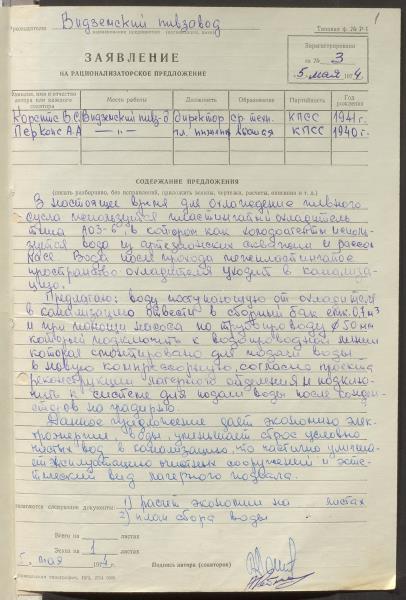 1
Руководителю Видземский пивзавод
Типовая ф. № Р-1
ЗАЯВЛЕНИЕ
НА РАЦИОНАЛИЗАТОРСКОЕ ПРЕДЛОЖЕНИЕ
Зарегистрировано
за № 3
5 мая 1974.
Фамилия, имя и отчество автора или каждого соавтора
Место работы
Должность
Образование
Партийность
Год рождения
В.С. Видземский пивз-д директор ср. тех. КПСС 1941 г.
Перконс А.А. —"— гл. инженер высшая КПСС 1940 г.
СОДЕРЖАНИЕ ПРЕДЛОЖЕНИЯ
(писать разборчиво, без исправлений, приложить эскизы, чертежи, расчеты, описания и т. д.)
В настоящее время для охлаждения пивного
сусла используется пластинчатый охладитель
типа в котором как хладоагенты исполь-
зуется вода из артезианских скважин и рассол
Вода после прохода
пространство охладителя уходит в канализа-
цию.
Предлагаю: воду поступающую от охладителя
в канализацию отвести в сборный бак емк. 0.7 м³
и при помощи насоса по трубопроводу ∅ 50 мм
который подключить к водопроводной линии
которая смонтировано для подачи воды
в новую компрессорную, согласно проекта
реконструкции лагерного отделения и подклю-
чить к системе для подачи воды после конден-
на градирню.
Данное предложение даёт экономию элек-
троэнергии, воды, уменьшает сброс условно
чистых вод в канализацию, что частично улучша-
ет эксплуатацию очистных сооружений и эсте-
тический вид лагерного подвала.
Прилагаются следующие документы: 1) расчёт экономии на листах
2) план сбора воды
Всего на 1 листах
Эскиз на листах
5. мая 1974 г.
Подпись автора (соавторов)